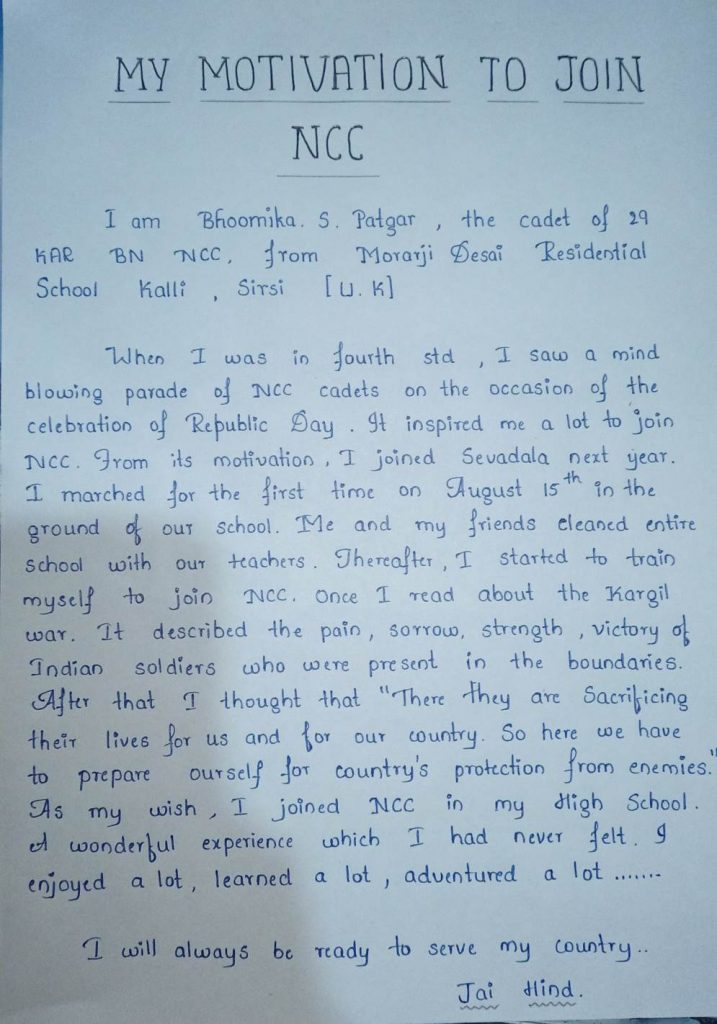 MY MOTIVATION TO JOIN
NCC
I am Bhoomika. S. Patgar , the cadet of 29
KAR BN NCC, from Morarji Desai Residential
School Kalli , Sirsi [U. K]
When I was in fourth std , I saw a mind
blowing parade of NCC cadets on the occasion of the
celebration of Republic Day . It inspired me a lot to join
NCC. From its motivation , I joined Sevadala next year.
I marched for the first time on August 15th in the
ground of our school. Me and my friends cleaned entire
school with our teachers. Thereafter , I started to train
myself to join NCC. Once I read about the Kargil
war. It described the pain , sorrow, strength , victory of
Indian soldiers who were present in the boundaries.
After that I thought that "There they are Sacrificing
their lives for us and for our country. So here we have
to prepare ourself for country's protection from enemies."
As my wish , I joined NCC in my High School.
A wonderful experience which I had never felt. I
enjoyed a lot, learned a lot , adventured a lot .......
I will always be ready to serve my country..
Jai Hind.